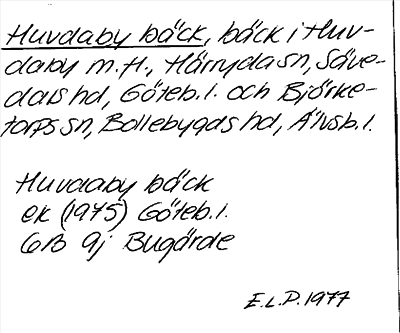 Huvdaby bäck, bäck i Huv-
daby m.fl., Härryda sn, Säve-
dals hd, Göteb.l. och Björke-
torps sn, Bollebygds hd, Älvsb.l.
Huvdaby bäck
ek (1975) Göteb.l.
6B 9j Bugärde
E.L.P. 1977